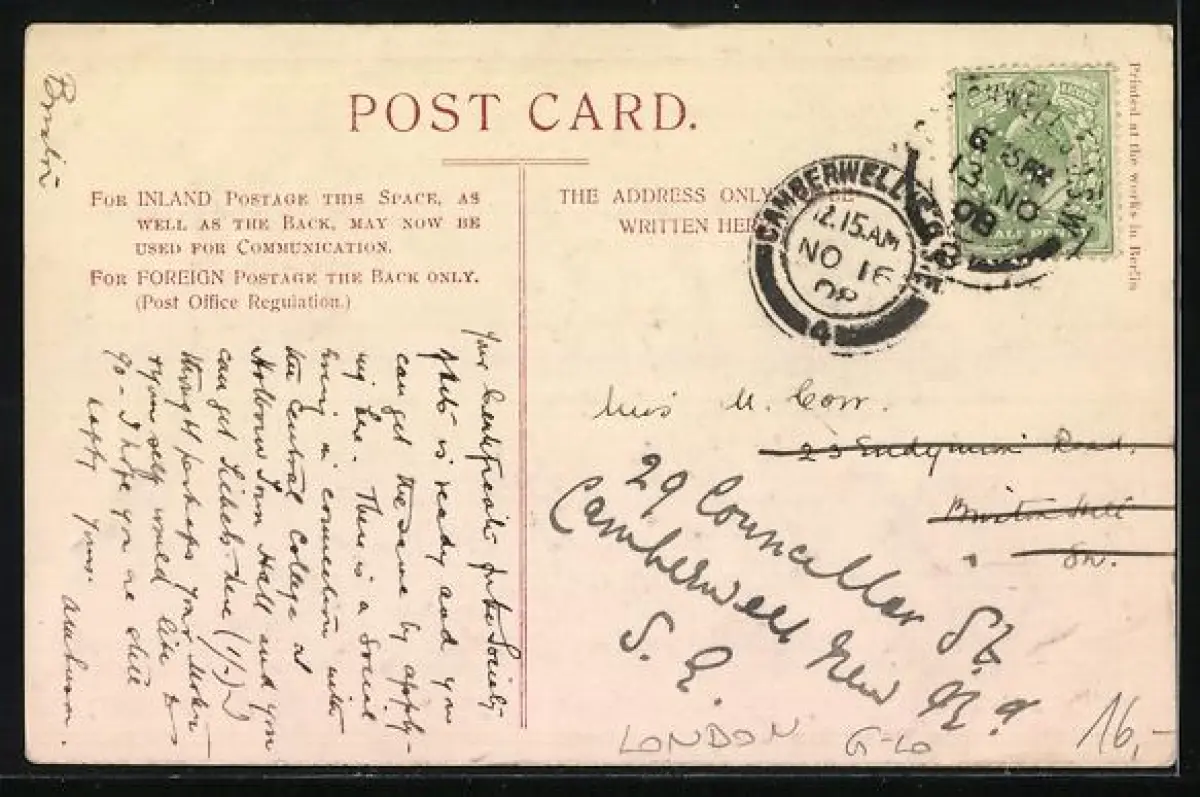 POST CARD.
FOR INLAND POSTAGE THIS SPACE, AS
WELL AS THE BACK, MAY NOW BE
USED FOR COMMUNICATION.
FOR FOREIGN POSTAGE THE BACK ONLY.
(Post Office Regulation.)
THE ADDRESS ONLY BE
WRITTEN HER
Printed at the works in Berlin
CAMBERWELL
12.15.AM
NO 16
08
4
13 NO
08
HALF PENNY
Brixton
your Certificate for the Society
is ready and you
can get the same by apply-
ing here. There is a Social
Evening in connection with
the Central College at
Holborn Town Hall and you
can get tickets here (1/-)
thought perhaps your sister
yourself would like to
go - I hope you are still
happy yours.
Miss M. Corr.
23 Endymion Road.
Brixton Hill
SW.
29 Councillor St
Camberwell New Rd
S. E.
LONDON
G-LO
16,-